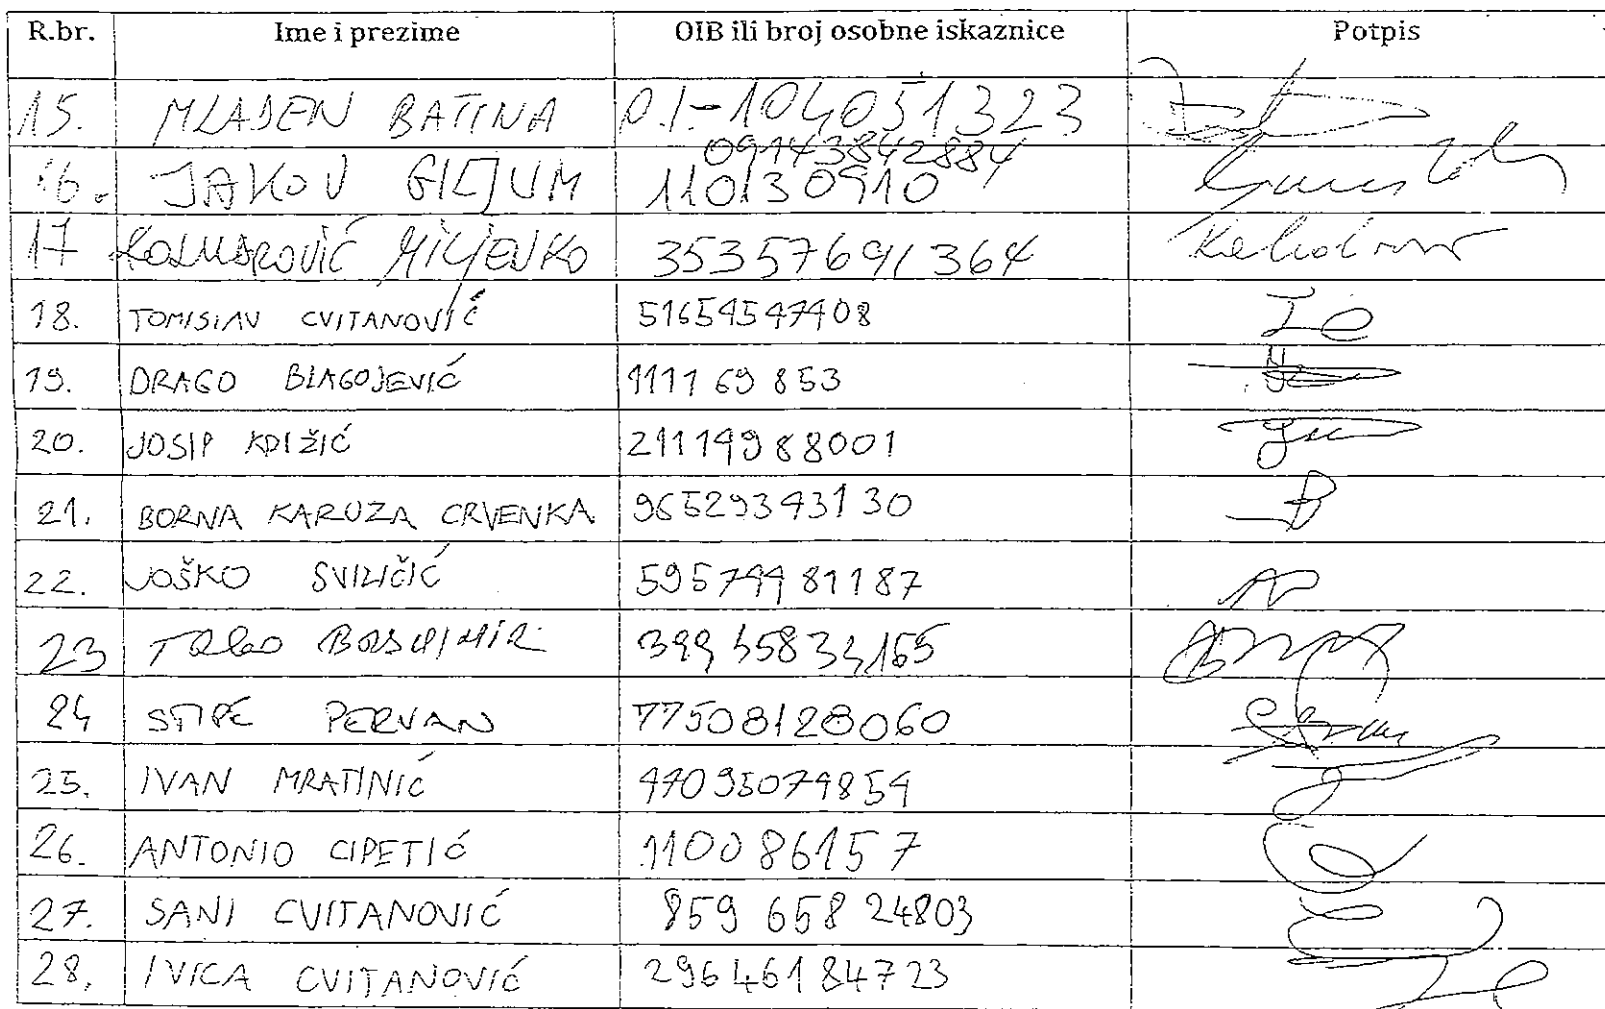 R.br. Ime i prezime OIB ili broj osobne iskaznice Potpis
15. MLADEN BATINA O.I-104051323
09143842884
16. JAKOV GILJUM 110130910
17 MILJENKO 35357691364
18. TOMISLAV CVITANOVIĆ 51654547408
19. DRAGO BLAGOJEVIĆ 111169853
20. JOSIP KRIŽIĆ 21114988001
21. BORNA KARUZA CRVENKA 96529343130
22. JOŠKO SVILIČIĆ 59574481187
23
24 STIPE PERVAN 77508128060
25. IVAN MRATINIĆ 47095074854
26. ANTONIO CIPETIĆ 110086157
27. SANI CVITANOVIĆ 859 658 24803
28. IVICA CVITANOVIĆ 29646184723